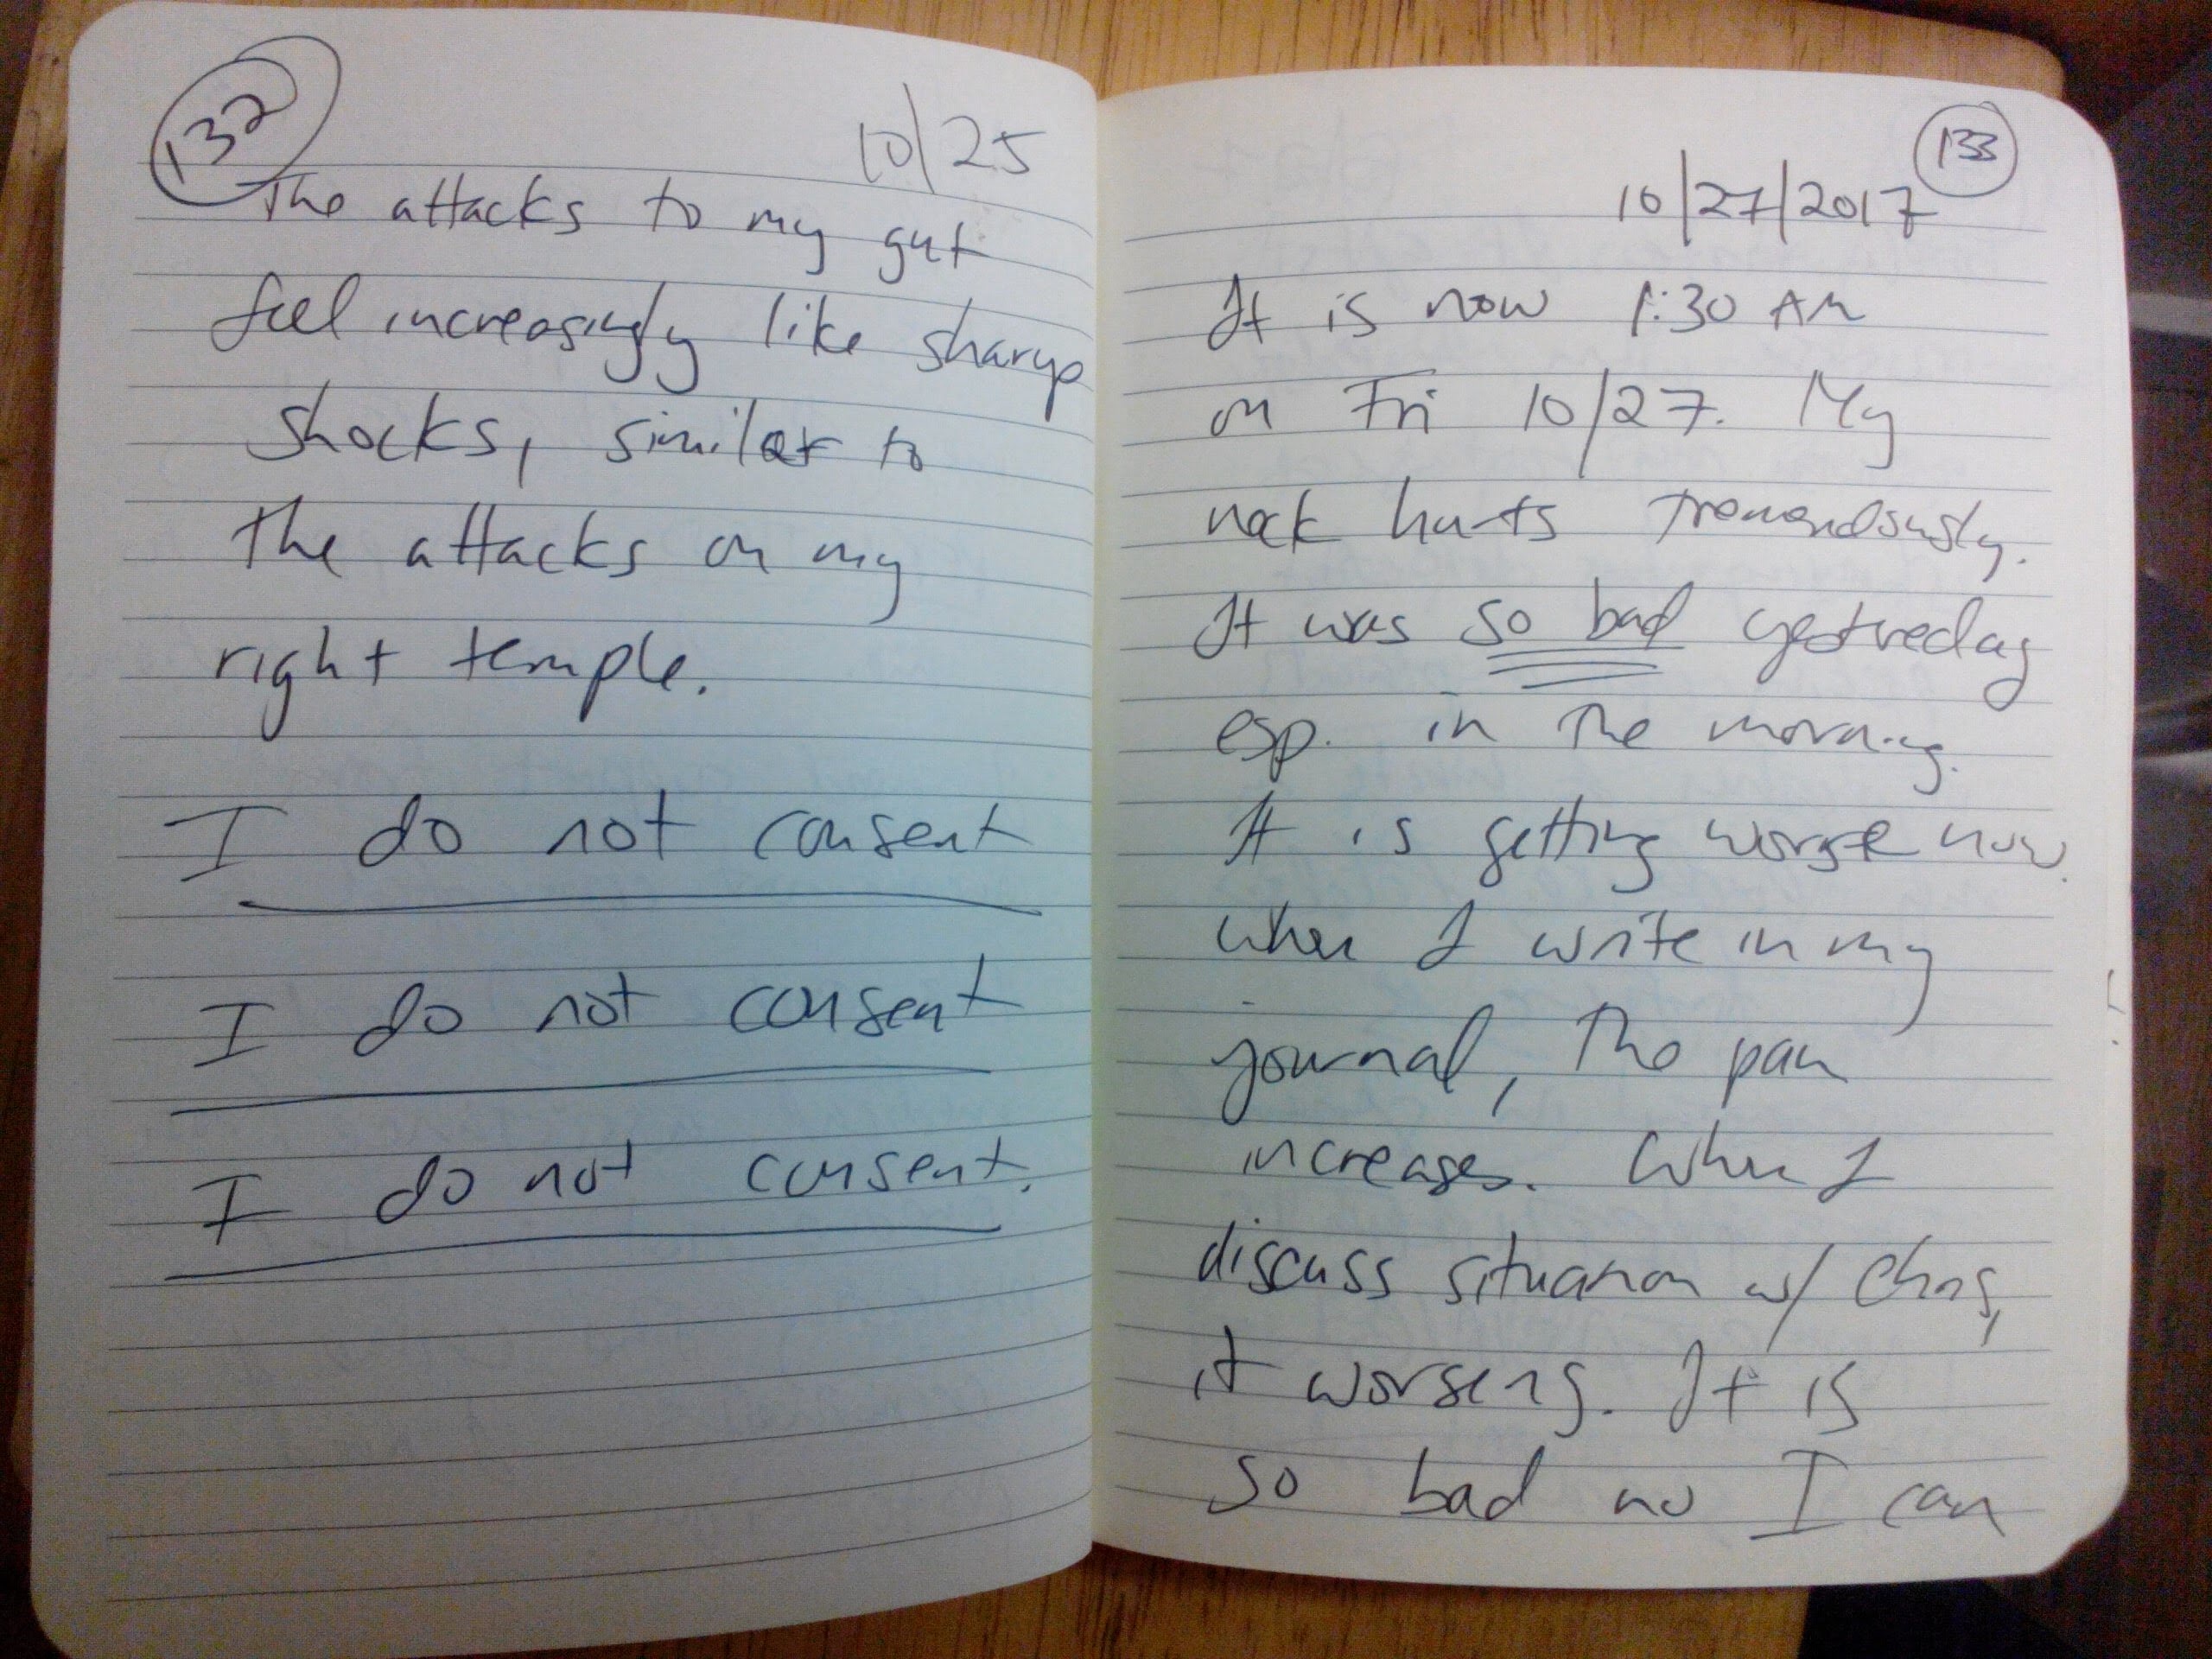 132
10/25
The attacks to my gut
feel increasingly like sharp
shocks, similar to
the attacks on my
right temple.
I do not consent
I do not consent
I do not consent.
133
10/27/2017
It is now 1:30 AM
on Fri 10/27. My
neck hurts tremendously.
It was so bad yestreday
esp. in the morning.
It is getting worse now.
When I write in my
journal, the pain
increases. When I
discuss situation w/ Chris,
it worsens. It is
so bad no I can